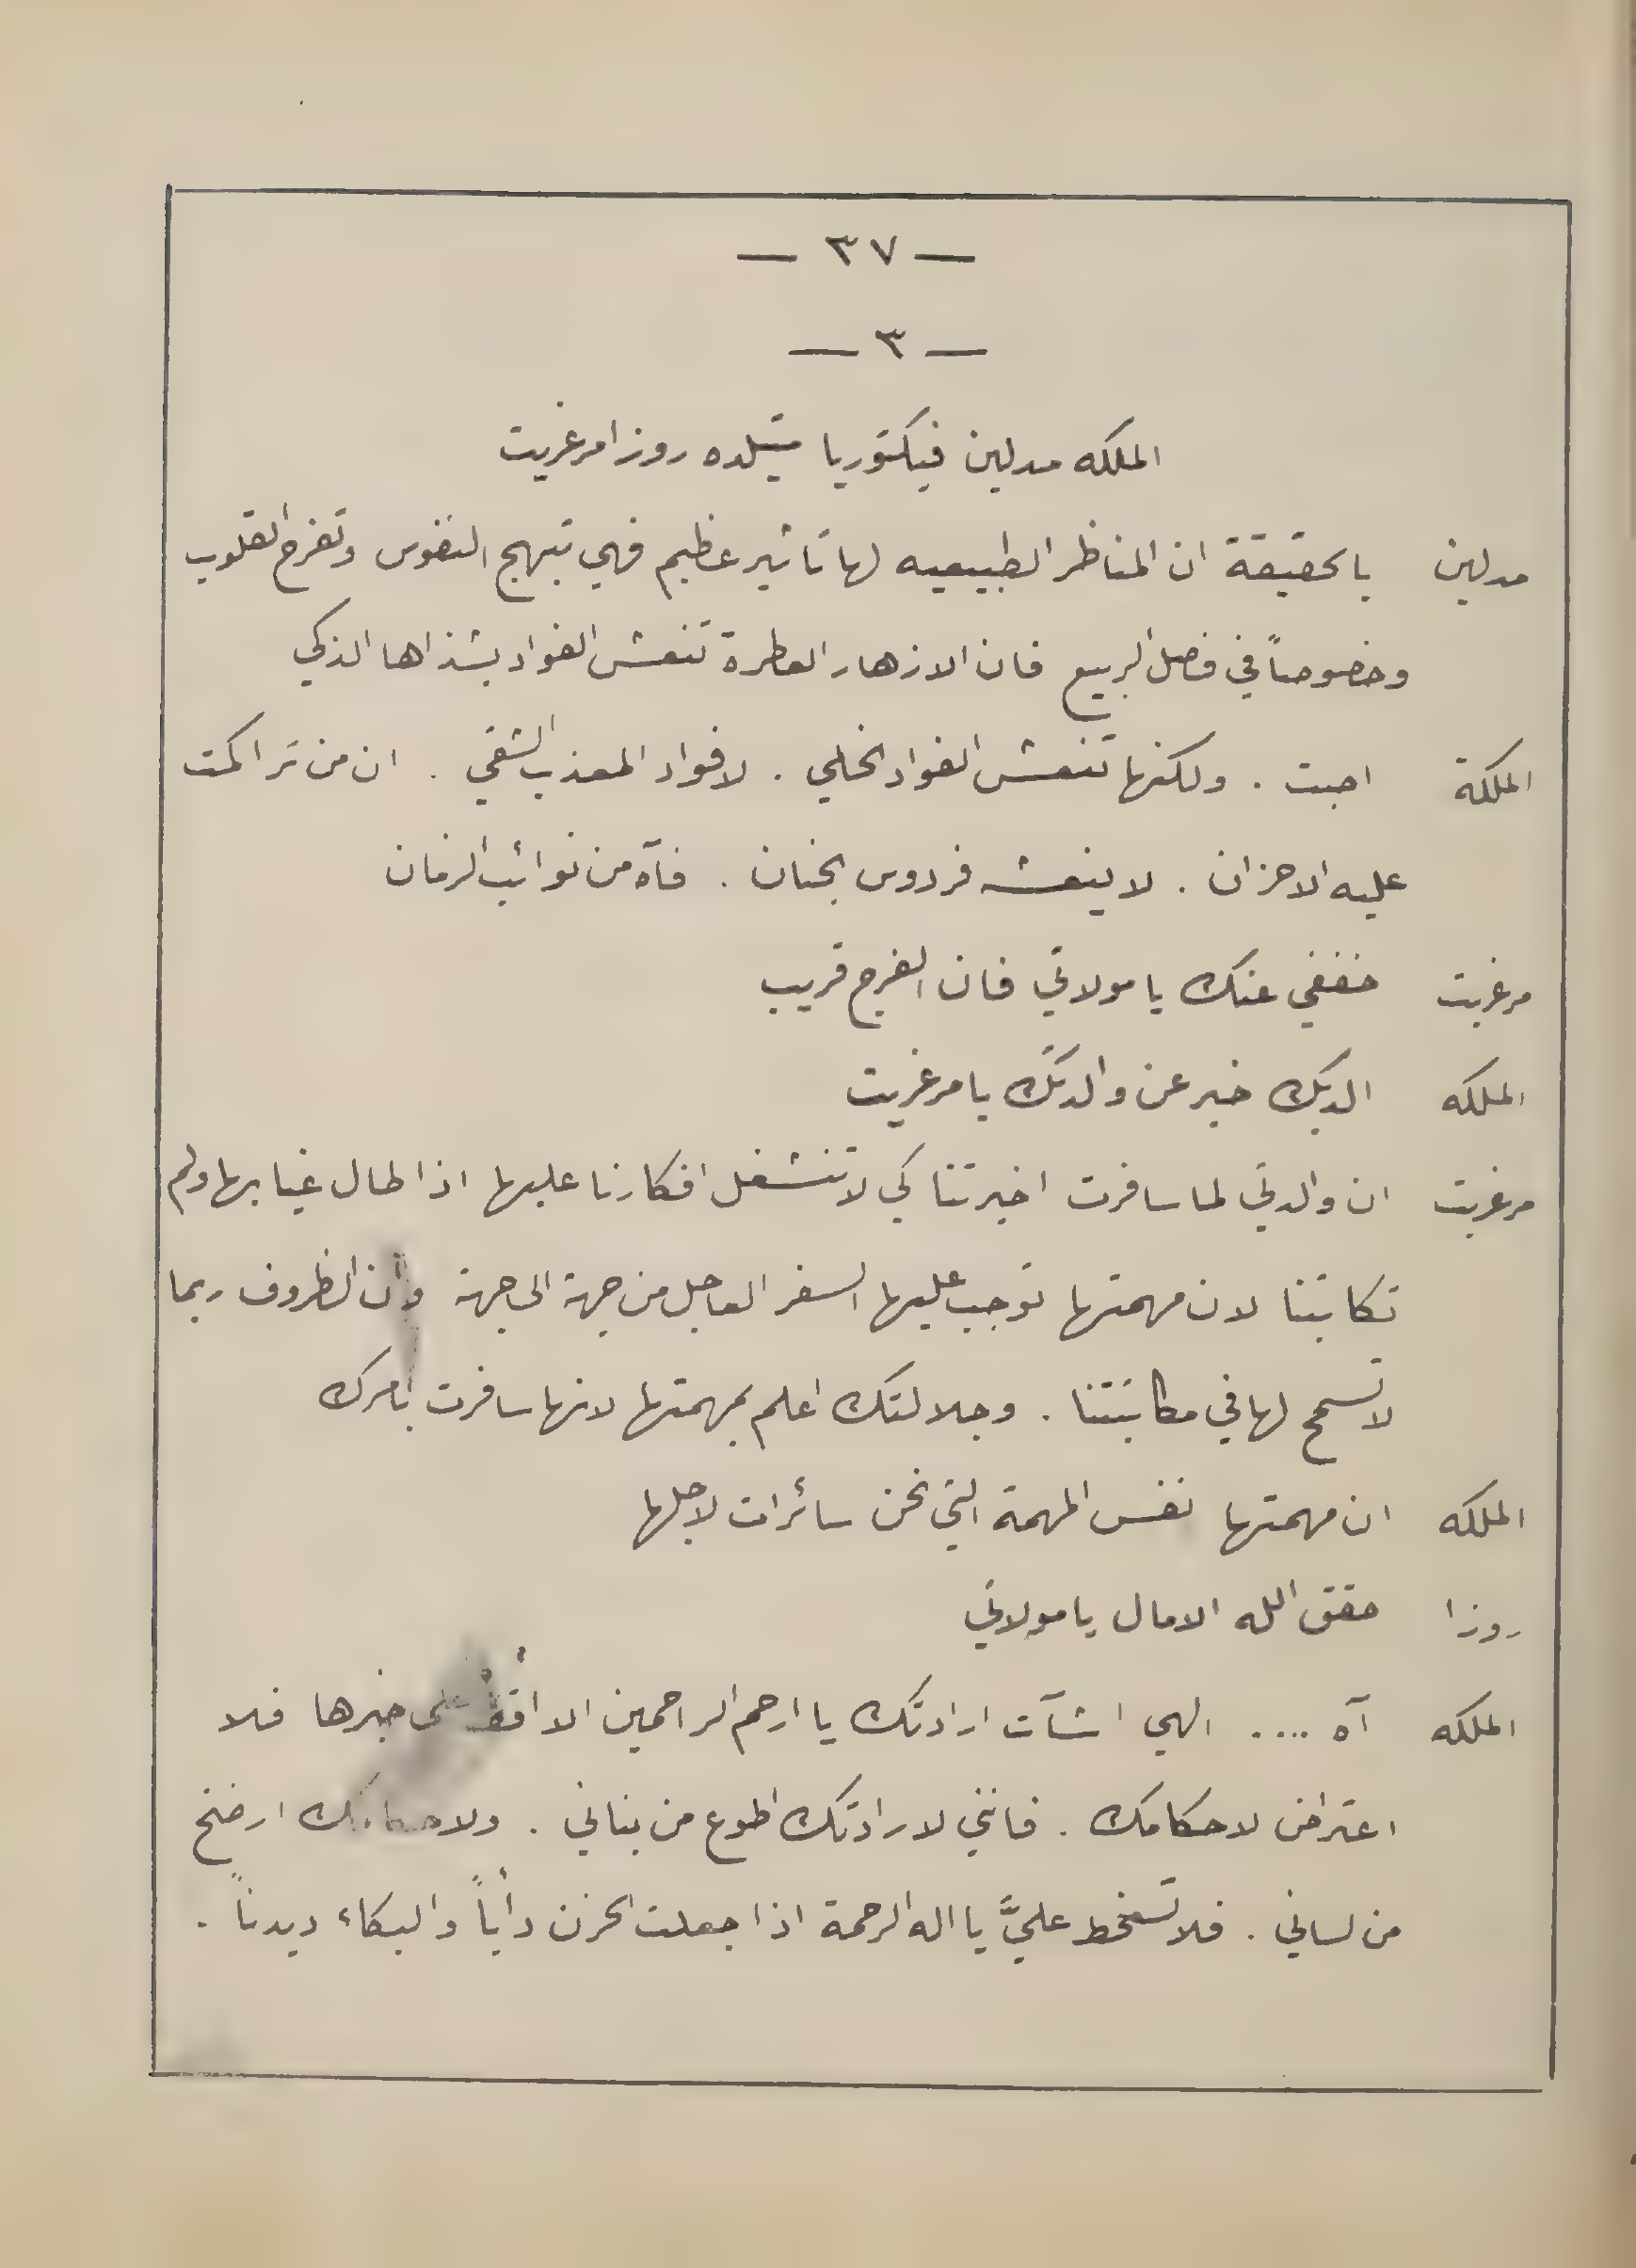 — ٣٧ —
— ٣ —
الملكه مدلين فيكتوريا متيلده روزا مرغريت
مدلين بالحقيقة ان المناظر الطبيعيه لها تاثير عظيم فهي تبهج النفوس وتفرح القلوب
وخصوصاً في فصل الربيع فان الازهار العطرة تنعش الفواد بشذاها الذكي
الملكة اجبت . ولكنها تنعش الفواد الخلي . لا فواد المعذب الشقي . ان من تراكمت
عليه الاحزان . لا ينعشه فردوس الجنان . فآه من نوائب الزمان
مرغريت خففي عنك يا مولاتي فان الفرج قريب
الملكه الديك خبر عن والدتك يا مرغريت
مرغريت ان والدتي لما سافرت اخبرتنا كي لا تنشغل افكارنا عليها اذا طال غيابها ولم
تكاتبنا لان مهمتها توجب عليها السفر العاجل من جهة الى جهة وأن الظروف ربما
لا تسمح لها في مكاتبتنا . وجلالتك اعلم بمهمتها لانها سافرت بأمرك
الملكه ان مهمتها نفس المهمة التي نحن سائرات لاجلها
روزا حقق الله الامال يا مولاتي
الملكه آه .... الهي اشآت ارادتك يا ارحم الراحمين الا اقف على خبرها فلا
اعتراض لاحكامك . فانني لارادتك اطوع من بناني . ولاحكامك ارضخ
من لساني . فلا تسخط عليَّ يا اله الرحمة اذا جعلت الحزن دأباً والبكاء ديدناً .